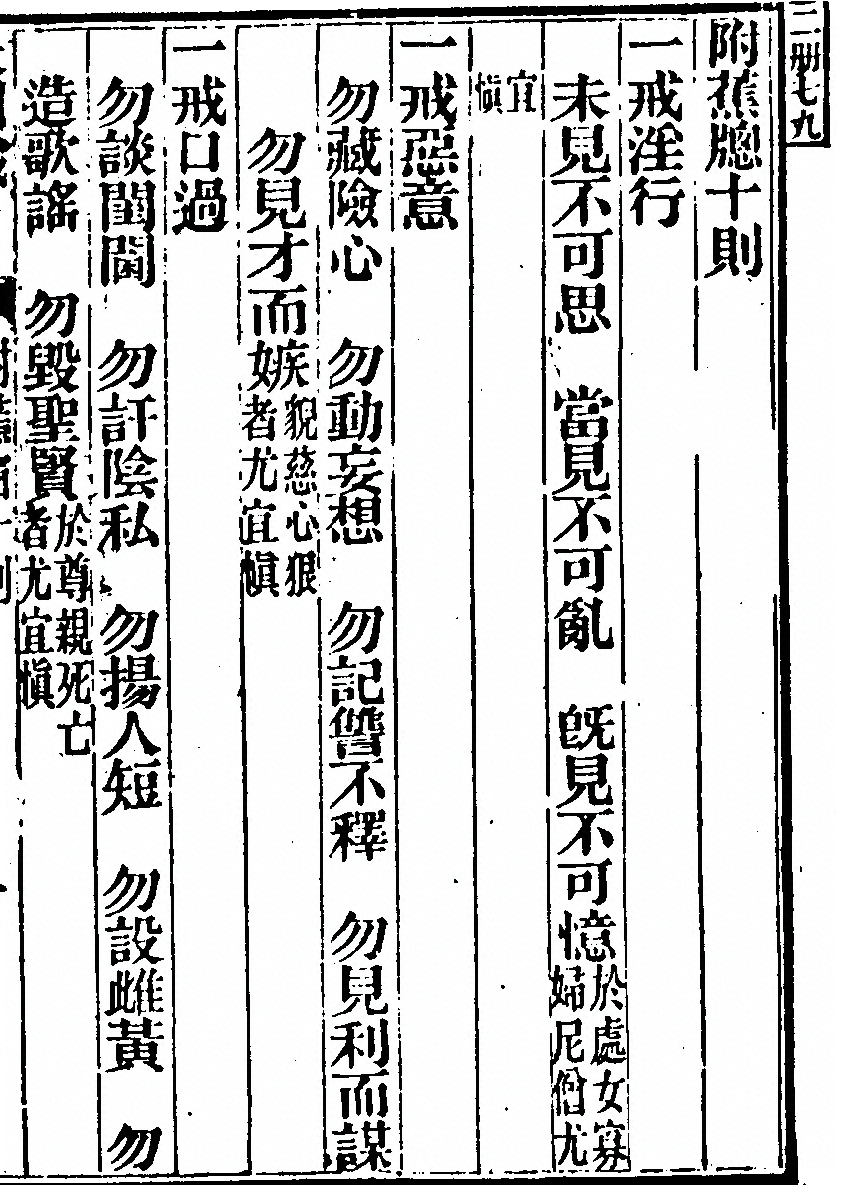 三一册七九
附蕉牕十則
一戒淫行
未見不可思　當見不可亂　旣見不可憶於處女寡
婦尼僧尤
宜
愼
一戒惡意
勿藏險心　勿動妄想　勿記讐不釋　勿見利而謀
勿見才而嫉貌慈心狠
者尤宜愼
一戒口過
勿談閨閫　勿訐陰私　勿揚人短　勿設雌黃　勿
造歌謠　勿毀聖賢於尊親死亡
者尤宜愼